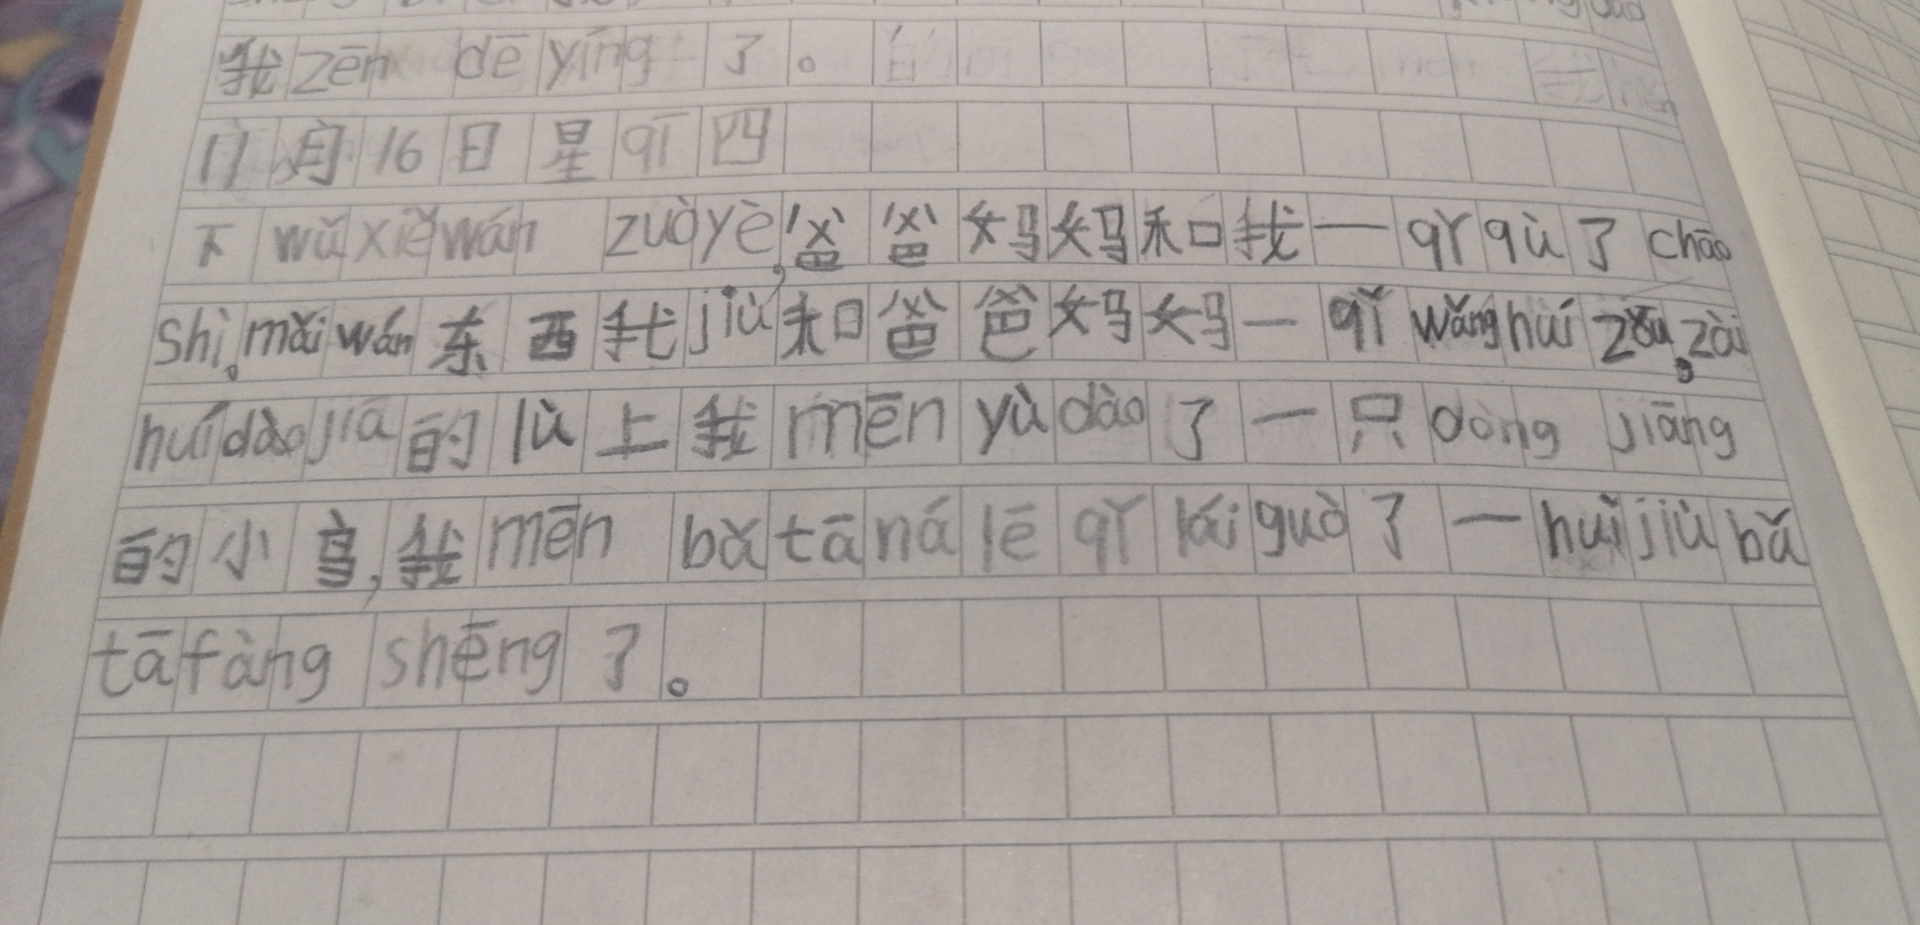 我zēn dē yíng了。
11月16日星qī四
下wǔxiěwán zuòyè,爸爸妈妈和我一qǐqù了chāo
shì,mǎiwán东西我jiù和爸爸妈妈一qǐwǎnghuízǒu,zài
huídàojiā的lù上我mēnyùdào了一只dòngjiāng
的小鸟,我mēnbǎtānálēqǐláiguò了一huǐjiùbǎ
tāfàngshēng了。